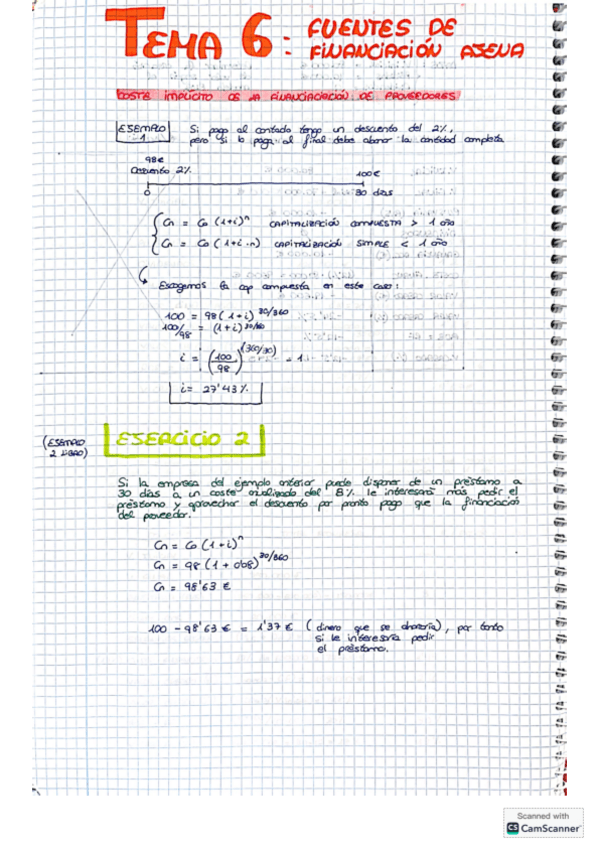 TEMA 6: FUENTES DE
FINANCIACIÓN AJENA
COSTE IMPLÍCITO DE LA FINANCIACIÓN DE PROVEEDORES
EJEMPLO 1
Si pago al contado tengo un descuento del 2%,
pero si lo paga al final debe abonar la cantidad completa
98€
Descuento 2%
100€
0
30 días
Cn = Co (1+i)^n CAPITALIZACIÓN COMPUESTA > 1 año
Cn = Co (1+i·n) CAPITALIZACIÓN SIMPLE < 1 año
Escogemos la cap compuesta en este caso:
100 = 98 (1+i)^30/360
100/98 = (1+i)^30/360
i = (100/98)^(360/30) - 1
i = 27'43%
(EJEMPLO
2 LIBRO)
EJERCICIO 2
Si la empresa del ejemplo anterior puede disponer de un préstamo a
30 días a un coste anualizado del 8% le interesará más pedir el
préstamo y aprovechar el descuento por pronto pago que la financiación
del proveedor.
Cn = Co (1+i)^n
Cn = 98 (1 + 0'08)^30/360
Cn = 98'63 €
100 - 98'63 € = 1'37 € (dinero que se ahorraría), por tanto
si le interesaría pedir
el préstamo.
Scanned with
CS CamScanner